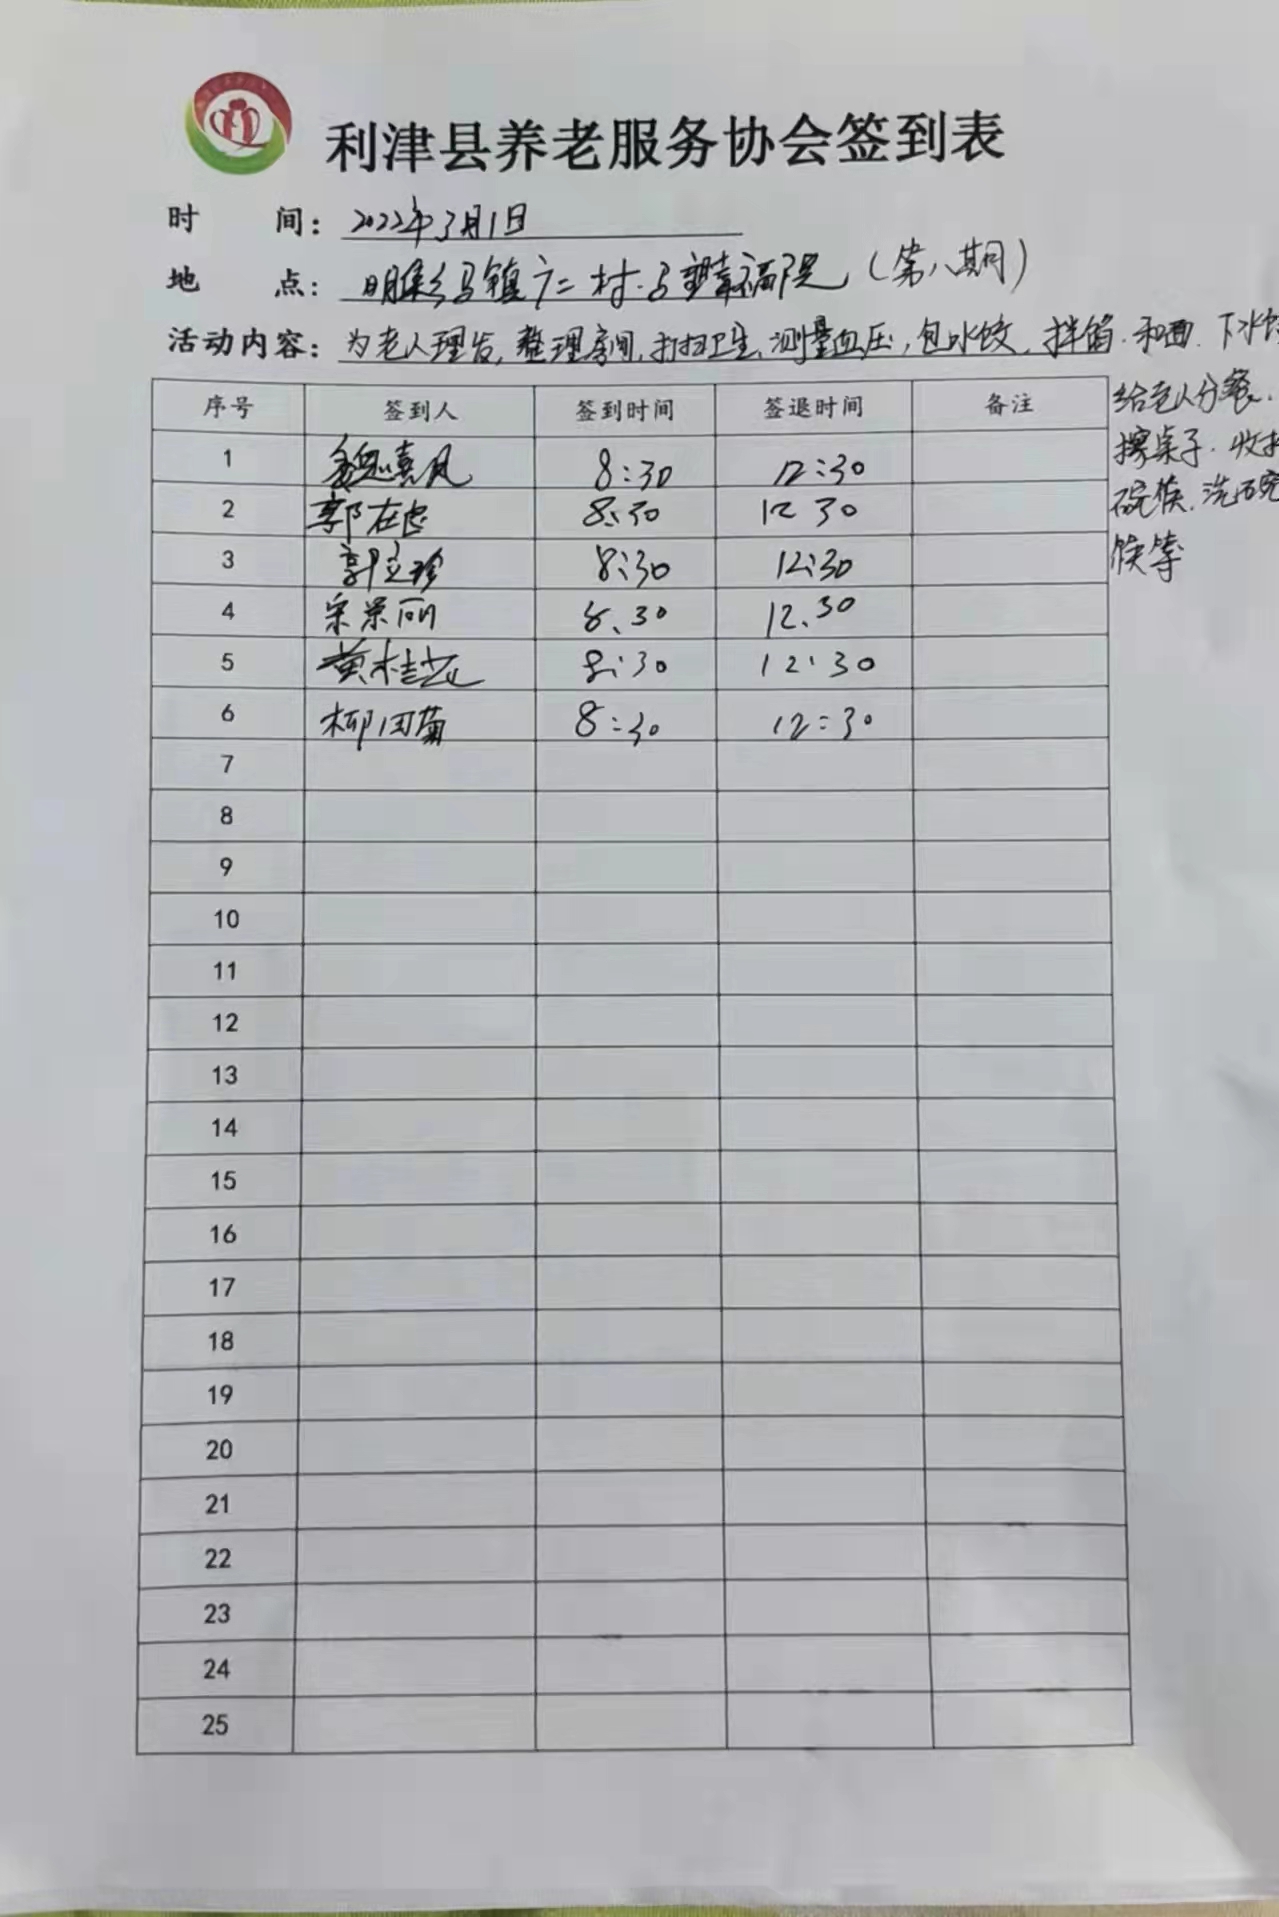 利津县养老服务协会签到表
时 间: 2022年3月1日
地 点: 明集乡 镇 村 幸福院 (第八期)
活动内容: 为老人理发, 整理房间, 打扫卫生、测量血压, 包水饺, 拌馅. 和面. 下水饺
给老人分餐.
擦桌子. 收拾
碗筷. 洗碗
筷等
序号 签到人 签到时间 签退时间 备注
1 魏喜凤 8:30 12:30
2 郭在忠 8:30 12 30
3 郭立珍 8:30 12:30
4 宋荣丽 8.30 12.30
5 黄桂花 8:30 12:30
6 柳国菊 8:30 12:30
7
8
9
10
11
12
13
14
15
16
17
18
19
20
21
22
23
24
25